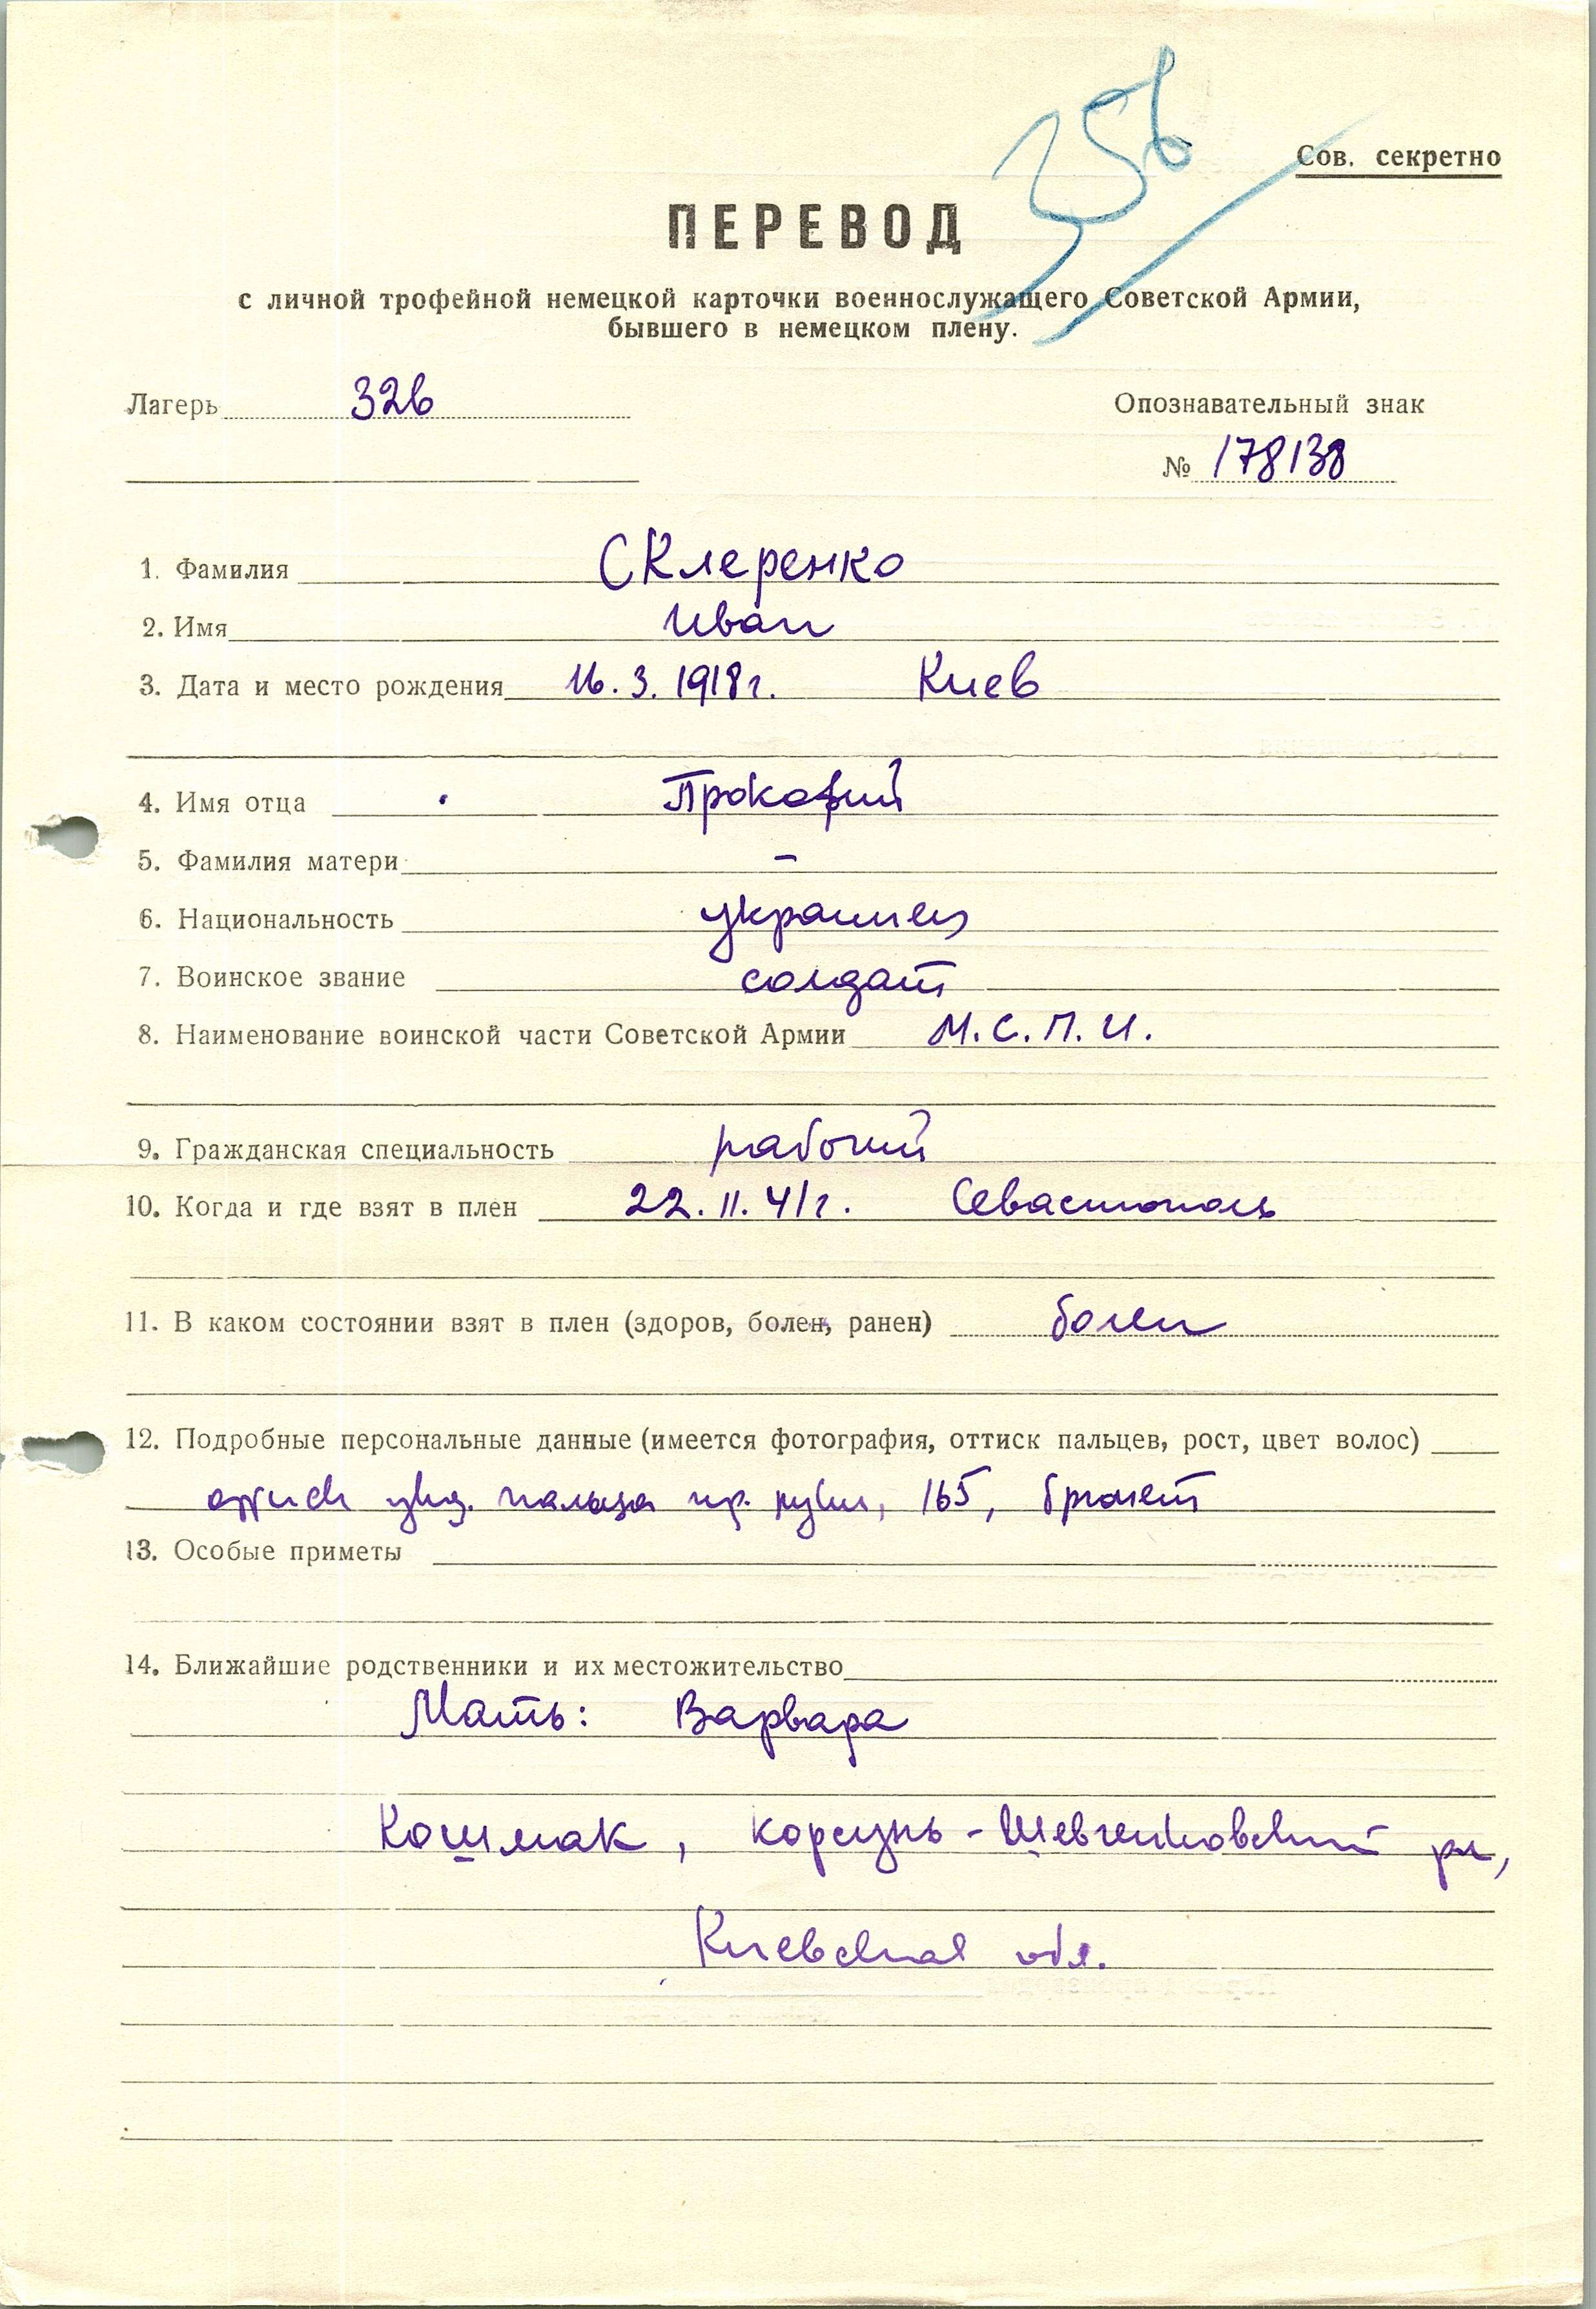 356
Сов. секретно
ПЕРЕВОД
с личной трофейной немецкой карточки военнослужащего Советской Армии,
бывшего в немецком плену.
Лагерь 326
Опознавательный знак
№ 178138
1. Фамилия Склеренко
2. Имя Иван
3. Дата и место рождения 16. 3. 1918 г. Киев
4. Имя отца Прокофий
5. Фамилия матери –
6. Национальность украинец
7. Воинское звание солдат
8. Наименование воинской части Советской Армии М. С. П. И.
9. Гражданская специальность рабочий
10. Когда и где взят в плен 22. 11. 41 г. Севастополь
11. В каком состоянии взят в плен (здоров, болен, ранен) болен
12. Подробные персональные данные (имеется фотография, оттиск пальцев, рост, цвет волос)
оттиск указ. пальца пр. руки, 165, брюнет
13. Особые приметы
14. Ближайшие родственники и их местожительство
Мать: Варвара
Кошмак, Корсунь-Шевченковский рн,
Киевская обл.